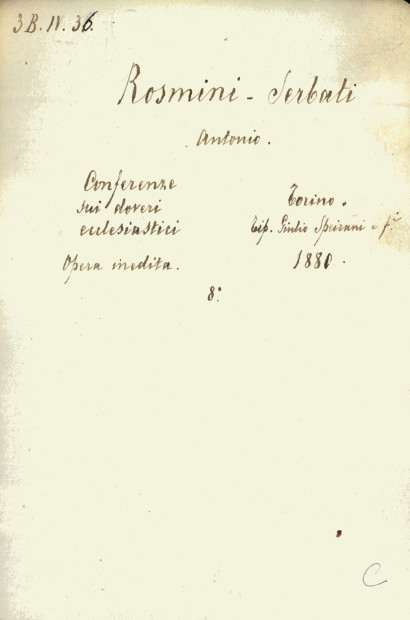 3B.IV.36.
Rosmini - Serbati
Antonio.
Conferenze
sui doveri
ecclesiastici
Opera inedita.
Torino.
Tip. Giulio Speirani e f.i
1880.
8.°
C